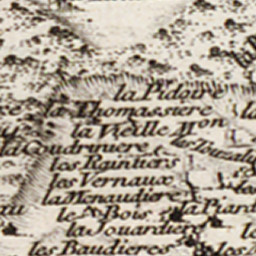 la Pidou
la Thomassiere
la Vieille Mon
la Coudriniere
les Raintiers
les Vernaux
la Menaudiere
le Bois
la Piard
la Jouardiere
les Baudieres